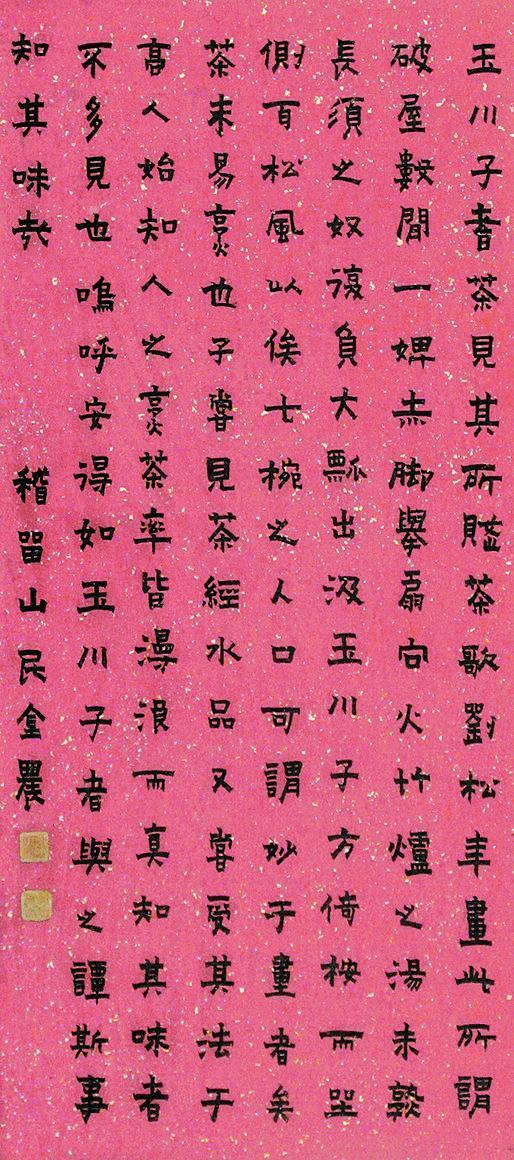 玉川子耆茶見其所賦茶歌劉松年畫此所謂
破屋數閒一婢赤脚舉扇向火竹爐之湯未孰
長須之奴復負大瓢出汲玉川子方倚桉而坐
側耳松風以俟七椀之入口可謂妙于畫者矣
茶未易烹也予嘗見茶經水品又嘗受其法于
高人始知人之烹茶率皆漫浪而真知其味者
不多見也嗚呼安得如玉川子者與之譚斯事
知其味哉 稽留山民金農